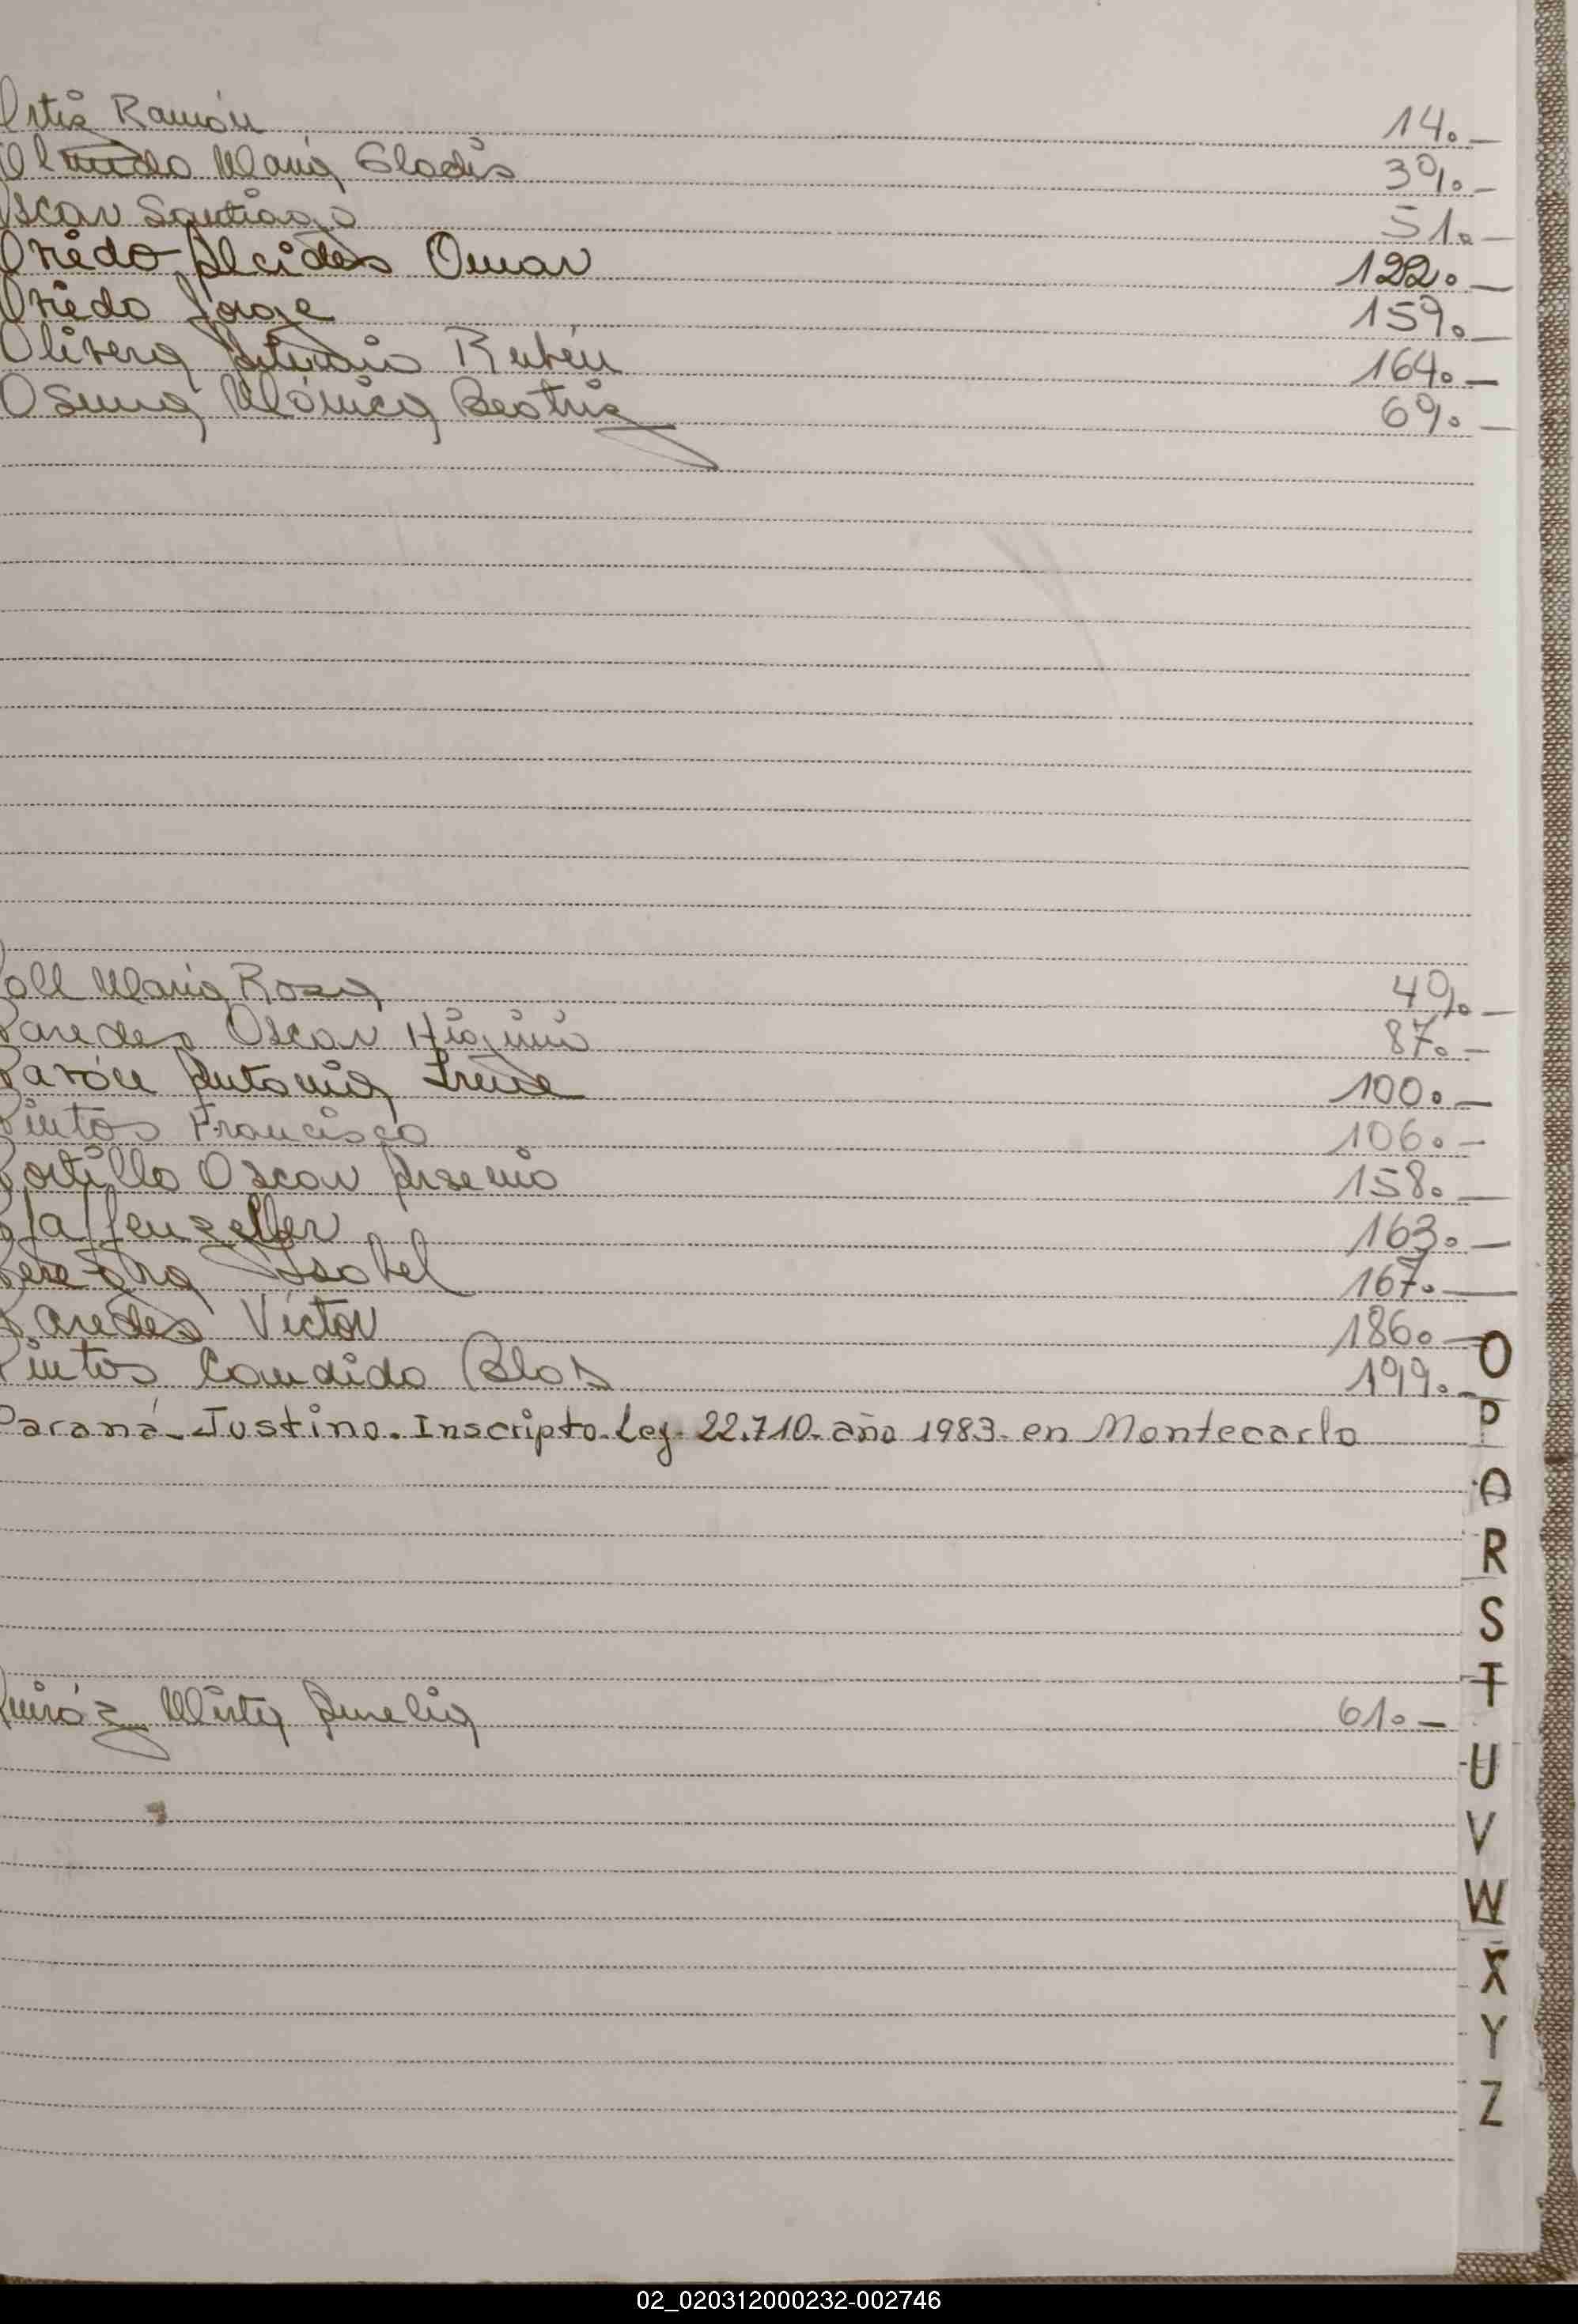 Ortiz Ramón 14.-
María Gladis 39.-
Oscar Santiago 51.-
Oviedo Alcides Omar 122.-
Oviedo Jorge 159.-
Olivera Antonio Rubén 164.-
Osuna Mónica Beatriz 69.-
Poll María Rosa 49.-
Paredes Oscar Higinio 87.-
Parón Antonia Irene 100.-
Pintos Francisco 106.-
Portillo Oscar Arsenio 158.-
Pfaffenzeller 163.-
Isabel 167.-
Paredes Víctor 186.-
Pintos Candido Blas 199.-
Paraná-Justino. Inscripto-Ley-22.710-año 1983-en Montecarlo
Quiróz Mirta Amelia 61.-
O
P
Q
R
S
T
U
V
W
X
Y
Z
02_020312000232-002746